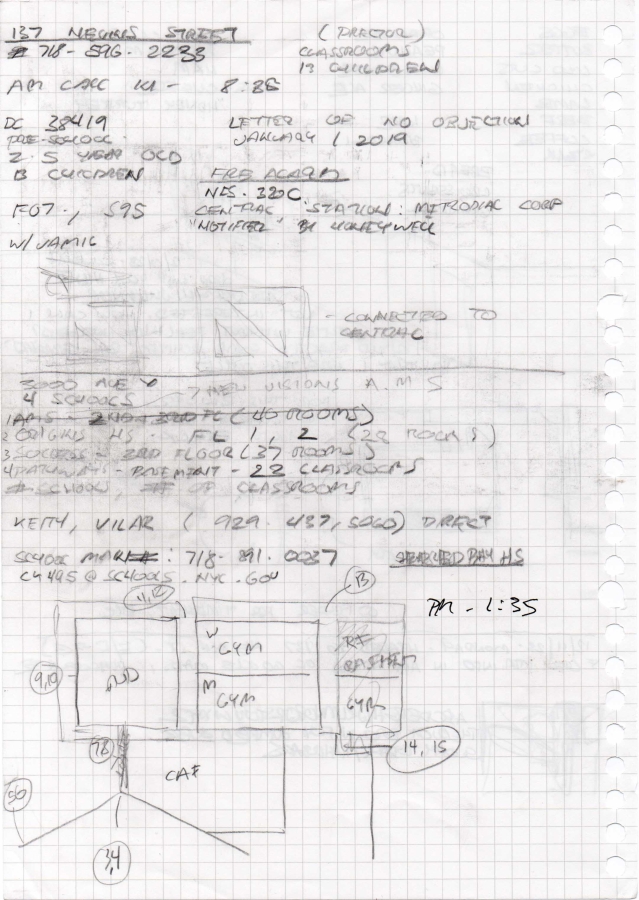 137 NEVINS STREET (DIRECTOR)
718-596-2233 CLASSROOMS
13 CHILDREN
AM CALL IN - 8:35
DC 38419 LETTER OF NO OBJECTION
PRE-SCHOOL JANUARY 1 2019
2.5 YEAR OLD
13 CHILDREN FIRE ALARM
NFS-320C
F07, S95 CENTRAL STATION: MITRODIAL CORP
"NOTIFIER" BY HONEYWELL
W/ JAMIG
- CONNECTED TO
CENTRAL
3000 AVE
4 SCHOOLS → NEW VISIONS A.M.S
1 AMS - 2ND - 3RD FL (40 ROOMS)
2 ORIGINS HS - FL 1, 2 (22 ROOMS)
3 SUCCESS - 2RD FLOOR (37 ROOMS)
4 PATHWAYS - BASEMENT - 22 CLASSROOMS
# SCHOOLS, # OF CLASSROOMS
VILAR (929.437.5060) DIRECT
SCHOOL : 718.891.0037 BAY HS
CK495@SCHOOLS.NYC.GOV
PM - 1:35
11,12
13
W
GYM
9,10
AUD
M
GYM
GYM
78
CAF
14, 15
50
3,4